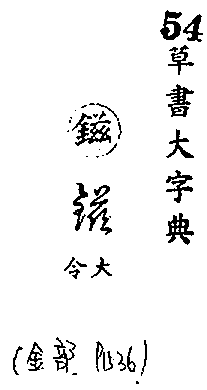 54
草書大字典
鎡
鎡
大令
(金部 P1536)